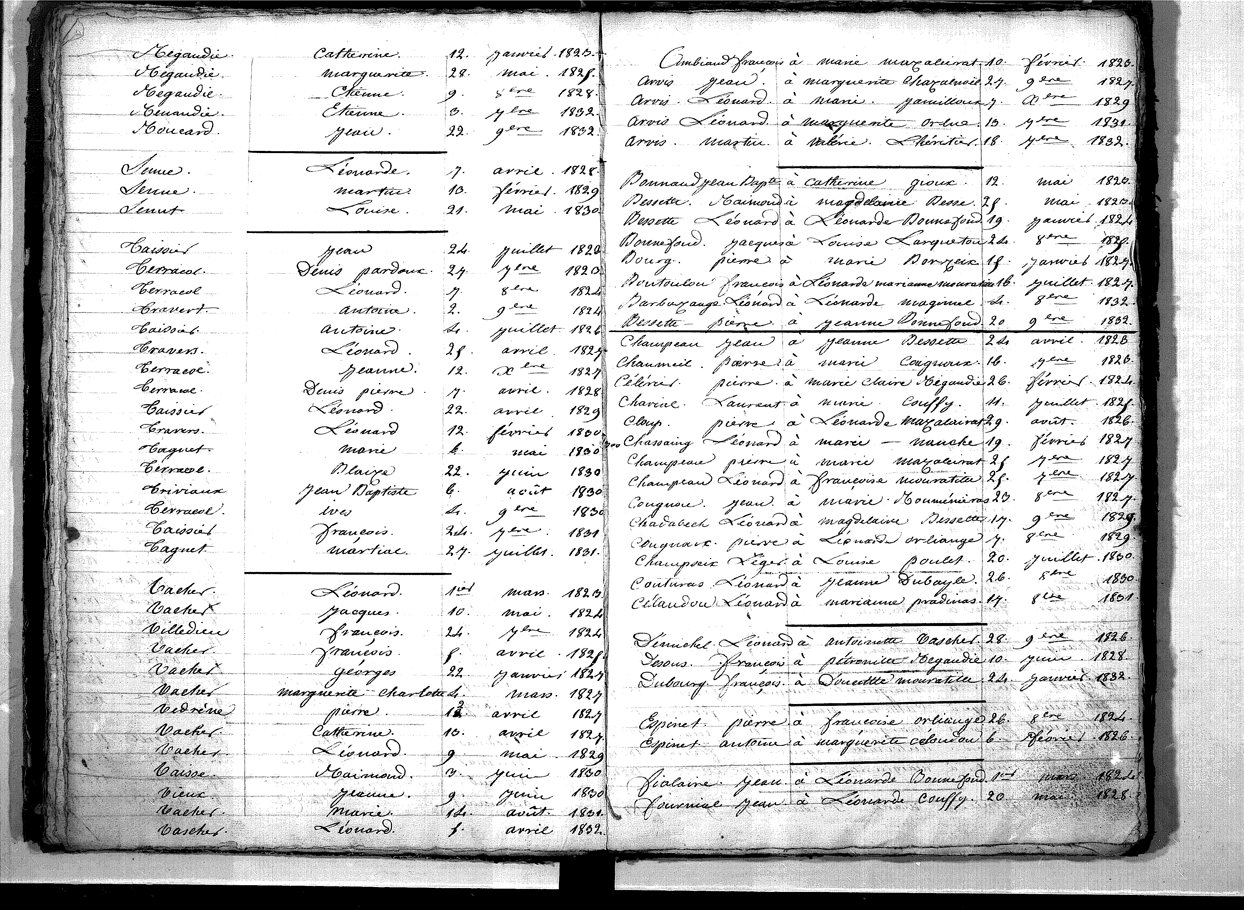 Mégaudie. Catherine. 12. janvier. 1823.
Mégaudie. marguerite. 28. mai. 1825.
Mégaudie. Etienne. 9. 8ère 1828.
Etienne. 3. 7ère 1832.
jean. 22. 9ère 1832.
Senue. Léonarde. 7. avril. 1828
Senue. martin. 10. février. 1829
Senut. Louise. 21. mai. 1830.
Taissier jean 24. juillet 1823
Terracol. Denis pardoux. 27. 7ère 1823.
Terracol Léonard. 7. 8ère 1824
Travert. antoine. 2. 9ère 1824
Taissier. antoine. 4. juillet 1826
Travers. Léonard. 25. avril. 1827
Terracol. Jeanne. 12. Xère 1827
Terracol. Denis pierre. 7. avril. 1828
Taissier Léonard. 22. avril 1829
Travers. Léonard 12. février 1830
Taguet. marie 6. mai 1830
Terracol. Blaize 22. juin 1830
Triviaux jean Baptiste 6. août 1830
Terracol. 4. 9ère 1830
Taissier françois. 24. 7ère 1831
Taguet martial 27. juillet. 1831.
Vacher. Léonard. 1er mars. 1823
Vacher Jacques. 10. mai. 1824
Villedieu françois. 24. 7ère 1824
Vacher. françois. 5. avril 1825
Vacher georges 22 janvier 1827
Vacher marguerite charlotte 4. mars. 1827
Vedrène pierre. 12. avril 1827
Vacher Catherine. 13. avril 1827
Vacher. Léonard. 9. mai. 1829
Vaisse. Raimond. 3. juin 1830
Vieux. jeanne. 9. juin 1830
Vacher. marie. 14. août. 1831.
Vascher. Léonard. 5. avril 1832.
Ambiaud françois à marie mazaleirat 10. février. 1823.
Arvis jean à marguerite Chazalnoël 27. 9ère 1827.
Arvis. Léonard. à marie. 7. Xère 1829
Arvis Léonard à marguerite 13. 7ère 1831.
Arvis. martin à Valérie. Lhéritier 18. 7ère 1832.
Bonnaud jean Bapte à catherine gioux. 12. mai 1823.
Bessette. Raimond à magdelaine Besse. 25. mai 1823
Bessette Léonard à Léonarde Bonnefond 19. janvier 1824
Bonnefond. jacques à Louise Largueton 24. 8ère 1825.
Bourg. pierre à marie Borzeix 15. janvier 1827.
Boutoulou françois à Léonarde marianne mouratille 16. juillet 1827.
Barbazange Léonard à Léonarde maginie 4. 8ère 1832.
Bessette pierre à jeanne Bonnefond. 20 9ère 1832.
Champeau jean à jeanne Bessette 24 avril. 1823
Chaumeil. pierre à marie Coignoux. 16. 7ère 1823.
Célérier. pierre. à marie claire Mégaudie 26. février. 1824.
Laurent à marie. Couffy. 11. juillet 1825.
Cloup. pierre à Léonarde mazaleirat 29. août. 1826.
Chassaing Léonard à marie 19. février 1827
Champeau pierre à marie mazaleirat 25 7ère 1827
Champeau Léonard à françoise mouratille 25. 7ère 1827
jean. à marie. 23. 8ère 1827.
Léonard à magdelaine Bessette 17. 9ère 1829.
pierre à Léonard orliange 7. 8ère 1829.
Léger à Louise Poulet. 20. juillet. 1830.
Couturas Léonard à Jeanne Dubayle. 26. 8ère 1830.
Célaudou Léonard à marianne pradinas. 17. 8ère 1831.
Demichel Léonard à antoinette Vascher 28. 9ère 1826.
Desous. françois à pétronille Mégaudie 10. juin 1828.
Dubourg françois. à mouratille 24. janvier 1832.
Espinet. pierre. à françoise orliange 26. 8ère 1824.
Espinet antoine à marguerite 6. février. 1826.
fialaire. jean. à Léonarde Bonnefond. 1er mars 1824
jean à Léonarde Couffy. 20 mai 1828.